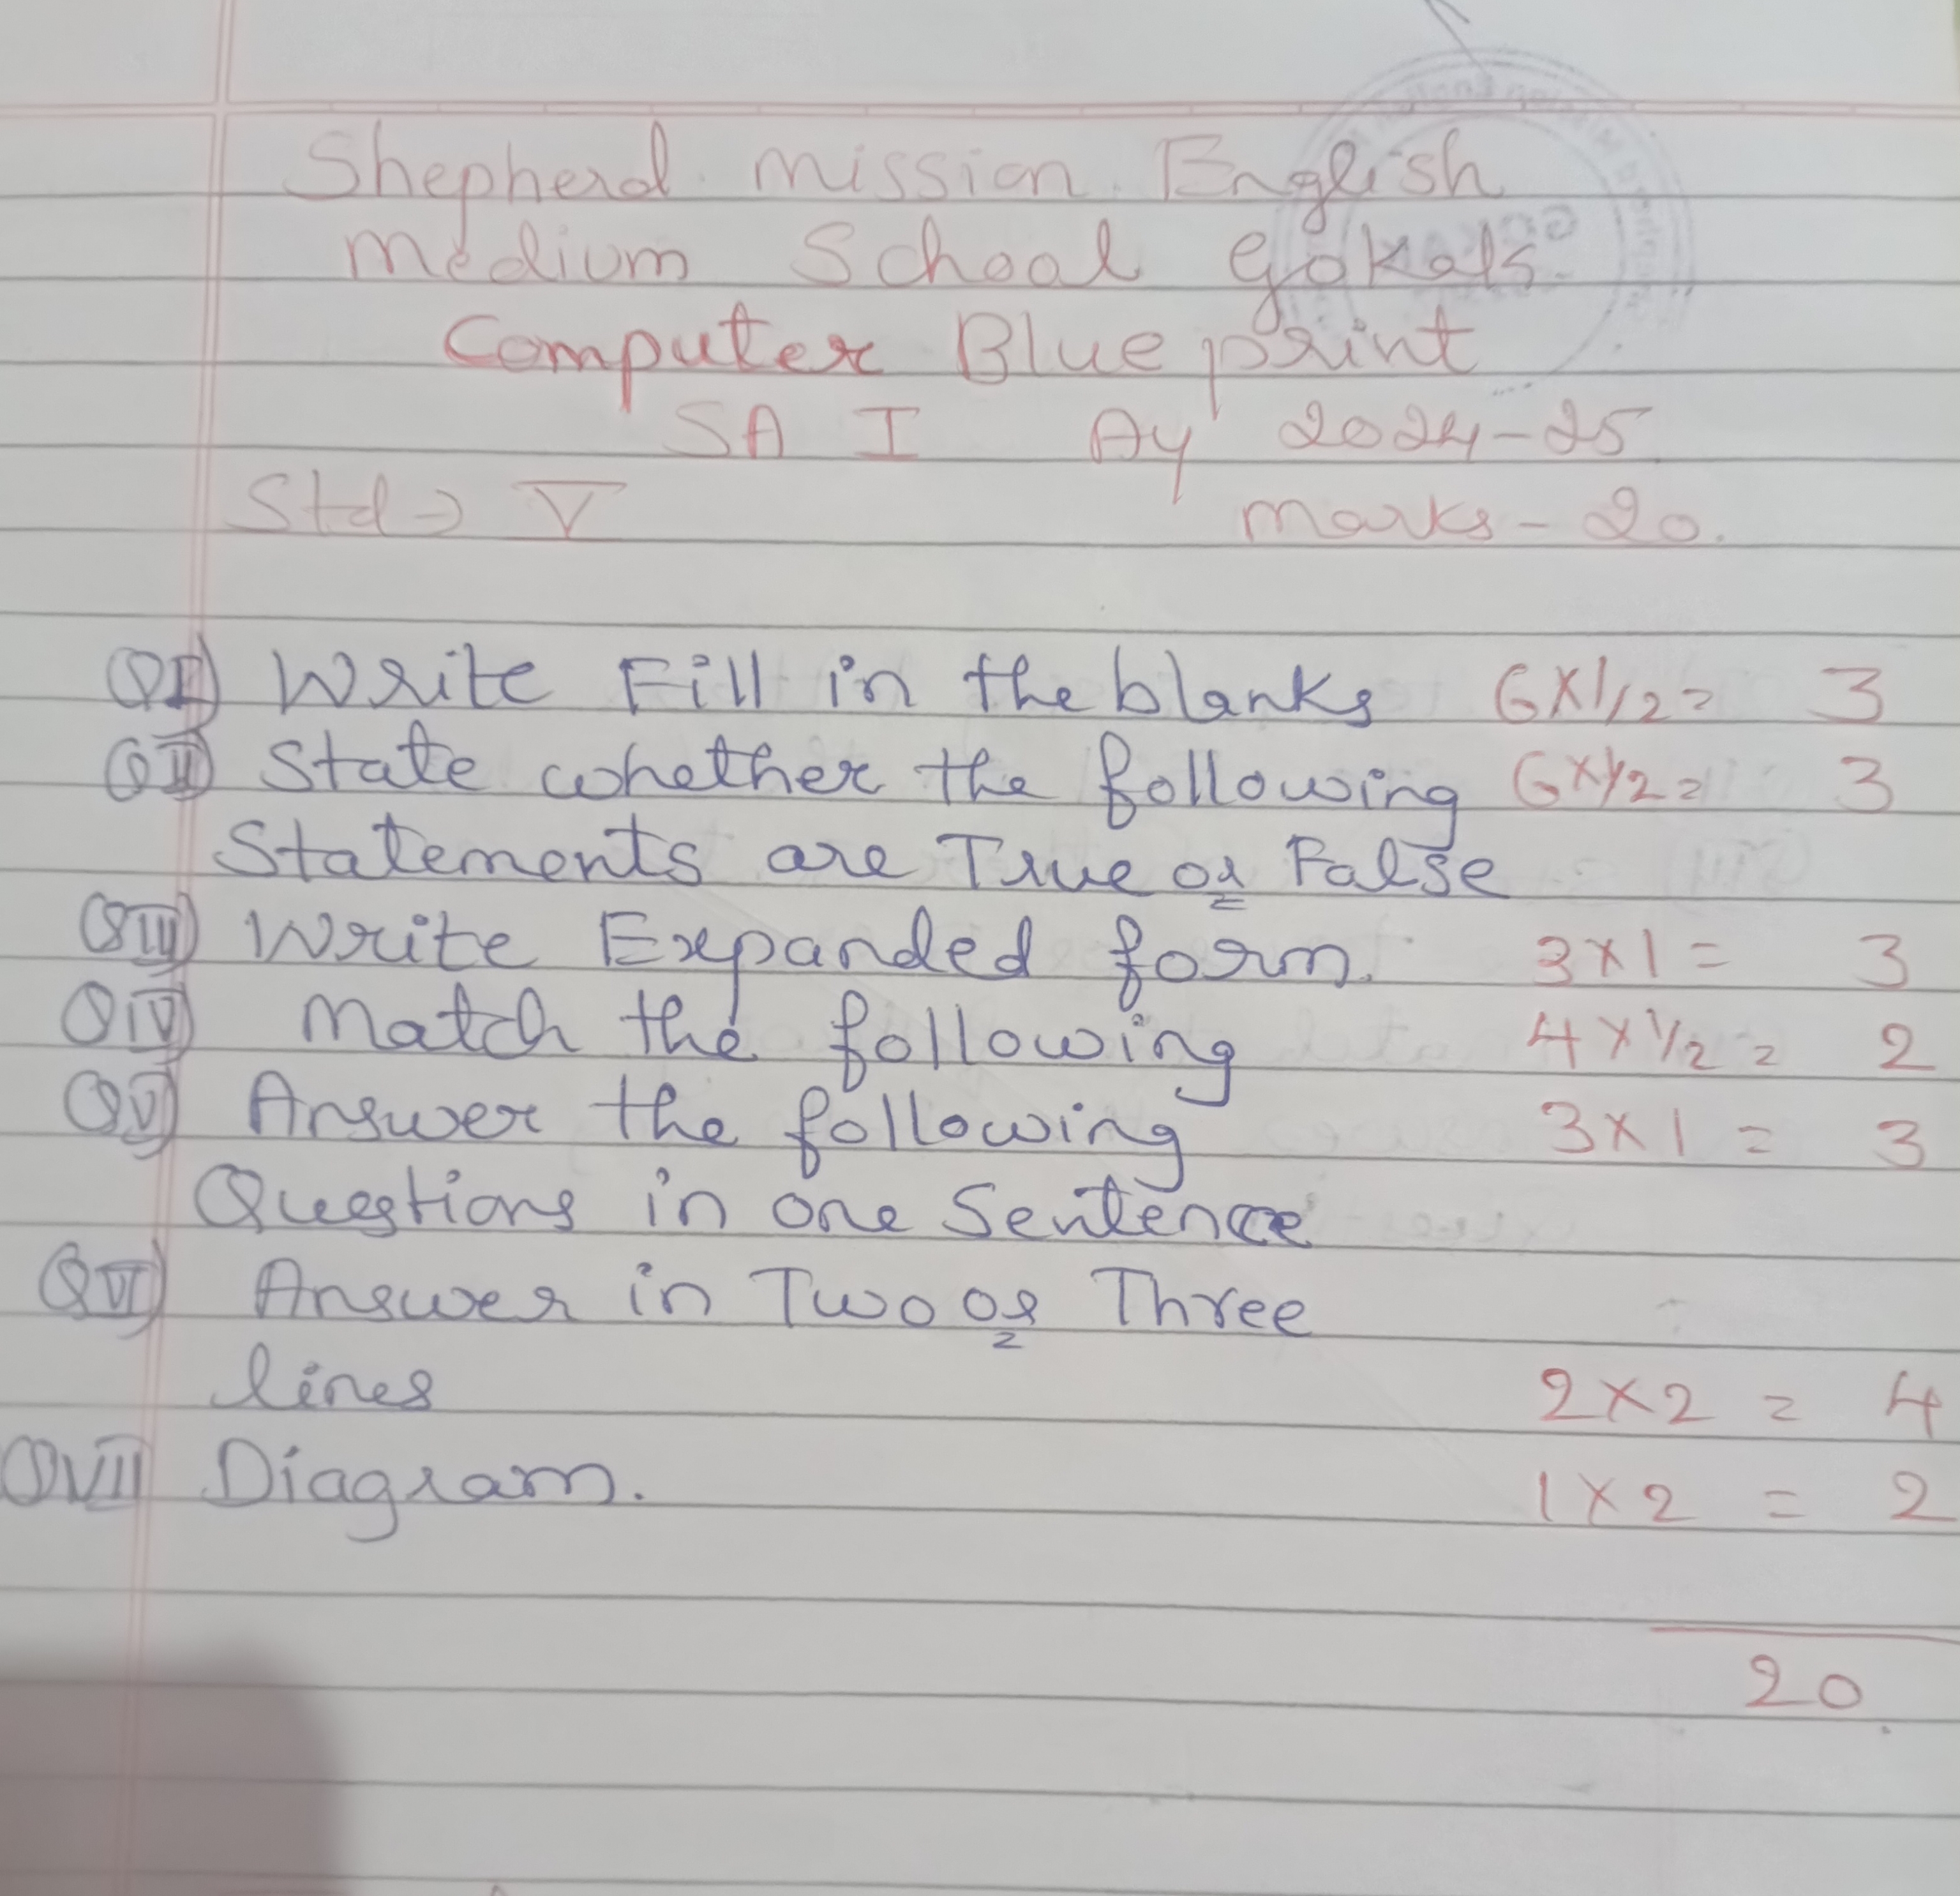 Shepherd mission English
Medium School Gokak
Computer Blue print
SA I Ay 2024-25
Std → V marks - 20.
QI) Write Fill in the blanks 6x1/2= 3
QII) State whether the following 6x1/2= 3
Statements are True or False
QIII) Write Expanded form. 3x1= 3
QIV) Match the following 4x1/2= 2
QV) Answer the following 3x1= 3
Questions in one Sentence
QVI) Answer in Two or Three
lines 2x2= 4
QVII Diagram. 1x2= 2
20